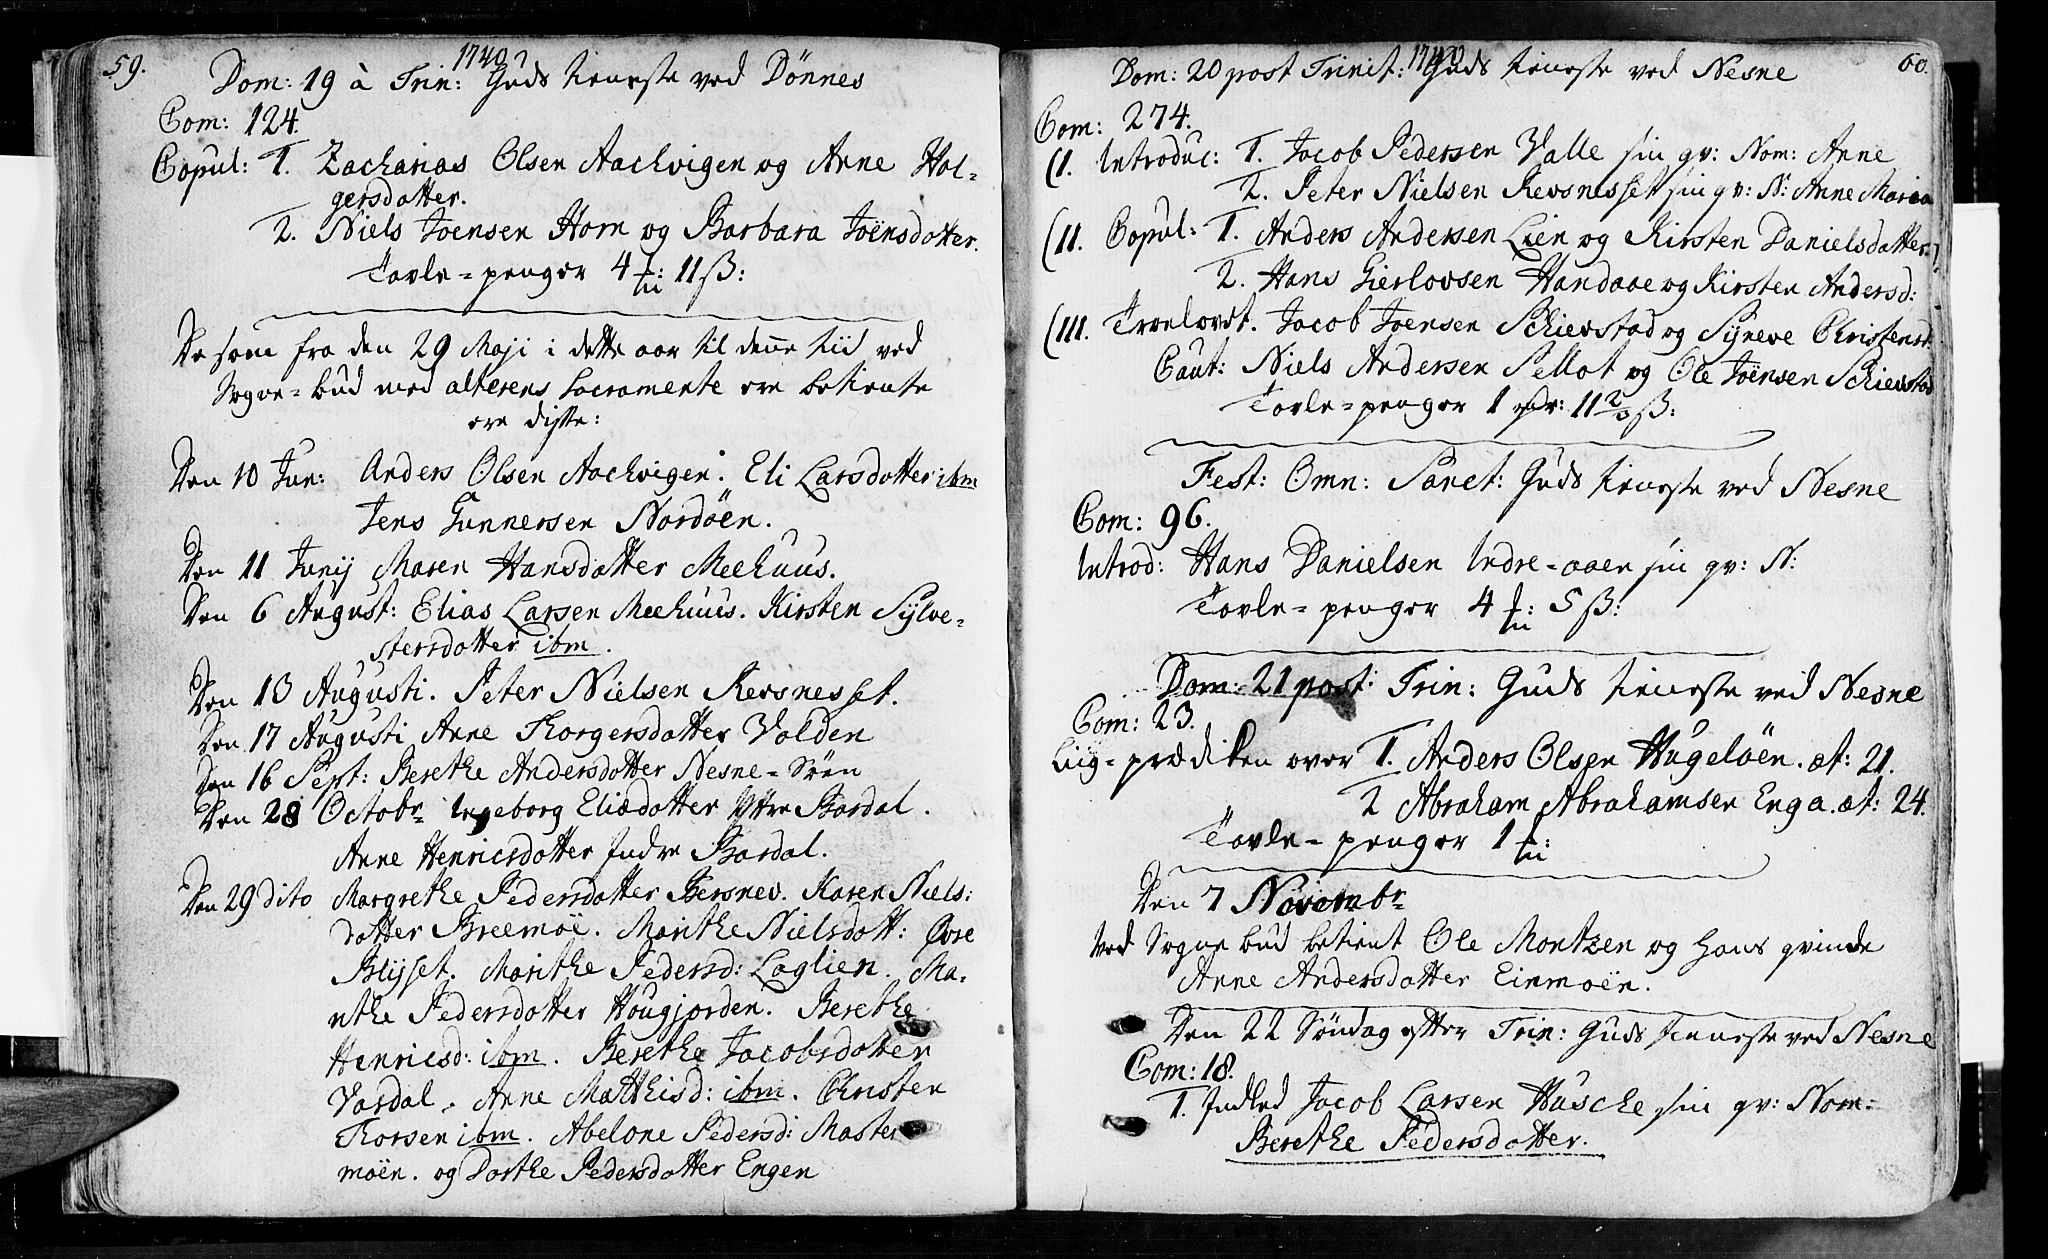 59.
1740
Dom: 19 à Trin: Guds tieneste ved Dönnes
Com: 124.
Copul: 1. Zacharias Olsen Aachvigen og Anne Hol-
gersdatter.
2. Niels Joensen Horn og Barbara Joënsdatter.
Tavle-penger 4 11 ß:
De som fra den 29 Maji i dette aar til denne tiid ved
Sogne-bud med alterens Sacramente ere betiente
ere disse:
Den 10 Jun: Anders Olsen Aachvigen. Eli Larsdatter ibm
Jens Gunnersen Nordöen.
Den 11 Junij Maren Hansdatter Meehuus.
Den 6 August: Elias Larsen Meehuus. Kirsten Sylve-
stersdatter ibm.
Den 13 Augusti. Peter Nielsen Revsnesset.
Den 17 Augusti Anne Thorgersdatter Valden
Den 16 Sept: Berethe Andersdatter Nesne-Söen
Den 28 Octobr Ingeborg Eliædatter Yttre Bardal.
Anne Henricsdatter Indre Bardal.
Den 29 dito Margrethe Pedersdatter Bersnev. Karen Niels:
datter Breemöe. Marithe Nielsdatt: Øvre
Blysset. Marithe Pedersd: Laglien. Ma-
rithe Pedersdatter Hougjorden. Berethe
Henricsd: ibm. Berethe Jacobsdatter
Vardal. Anne Matthisd: ibm. Christen
Thorsen ibm. Abelone Pedersd: Master
möen. og Dorthe Pedersdatter Engen
60.
1740
Dom: 20 post Trinit: Guds tieneste ved Nesne
Com: 274.
(I. Introduc: 1. Jacob Pedersen Valle sin qv: Nom: Anne
2. Peter Nielsen Revsnesset sin qv: N: Anne Maria
(II. Copul: 1. Anders Andersen Lien og Kirsten Danielsdatter.
2. Hans Gierlovsen Handaae og Kirsten Andersd:
(III. Troelovet. Jacob Joensen Schievstad og Syneve Christensd:
Caut: Niels Andersen Sellot og Ole Joënsen Schievstad
Tavle-penger 1 11 ß:
Fest: Omn: Sanct: Guds tieneste ved Nesne
Com: 96.
Introd: Hans Danielsen Indre-aaen sin qv: N:
Tavle-penger 4 5 ß:
Dom: 21 post Trin: Guds tieneste ved Nesne
Com: 23.
Liig-prædiken over 1. Anders Olsen Hugelöen. æt: 21.
2 Abraham Abrahamsen Enga. æt: 24.
Tavle-penger 1
Den 7 Novembr
Ved Sogne bud betient Ole Montzen og hans qvinde
Anne Andersdatter Einmoën.
Den 22 Söndag efter Trin: Guds tieneste ved Nesne
Com: 18.
1. Indled Jacob Larsen Husche sin qv: Nom:
Berethe Pedersdatter.